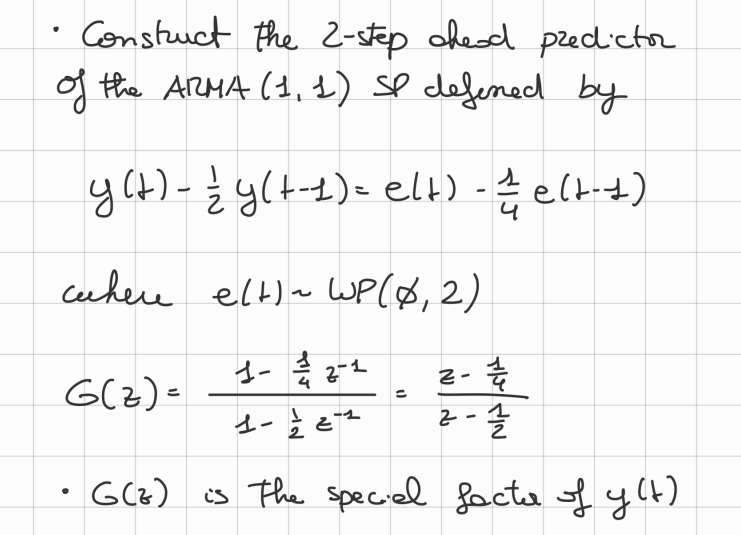 · Construct the 2-step ahead predictor
of the ARMA (1,1) SP defined by
y(t) - 1/2 y(t-1) = e(t) - 1/4 e(t-1)
where e(t) ~ WP(∅, 2)
G(z) = (1 - 1/4 z⁻¹)/(1 - 1/2 z⁻¹) = (z - 1/4)/(z - 1/2)
· G(z) is the special factor of y(t)